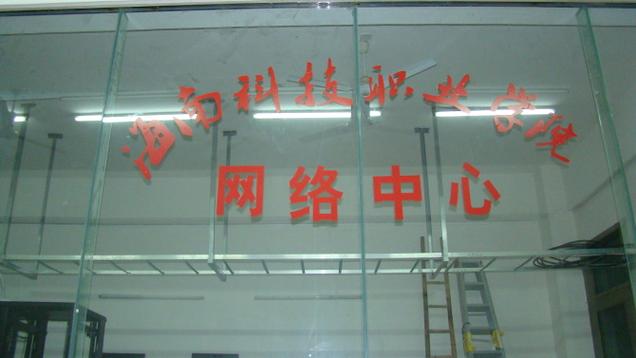 海南科技职业学院
网络中心